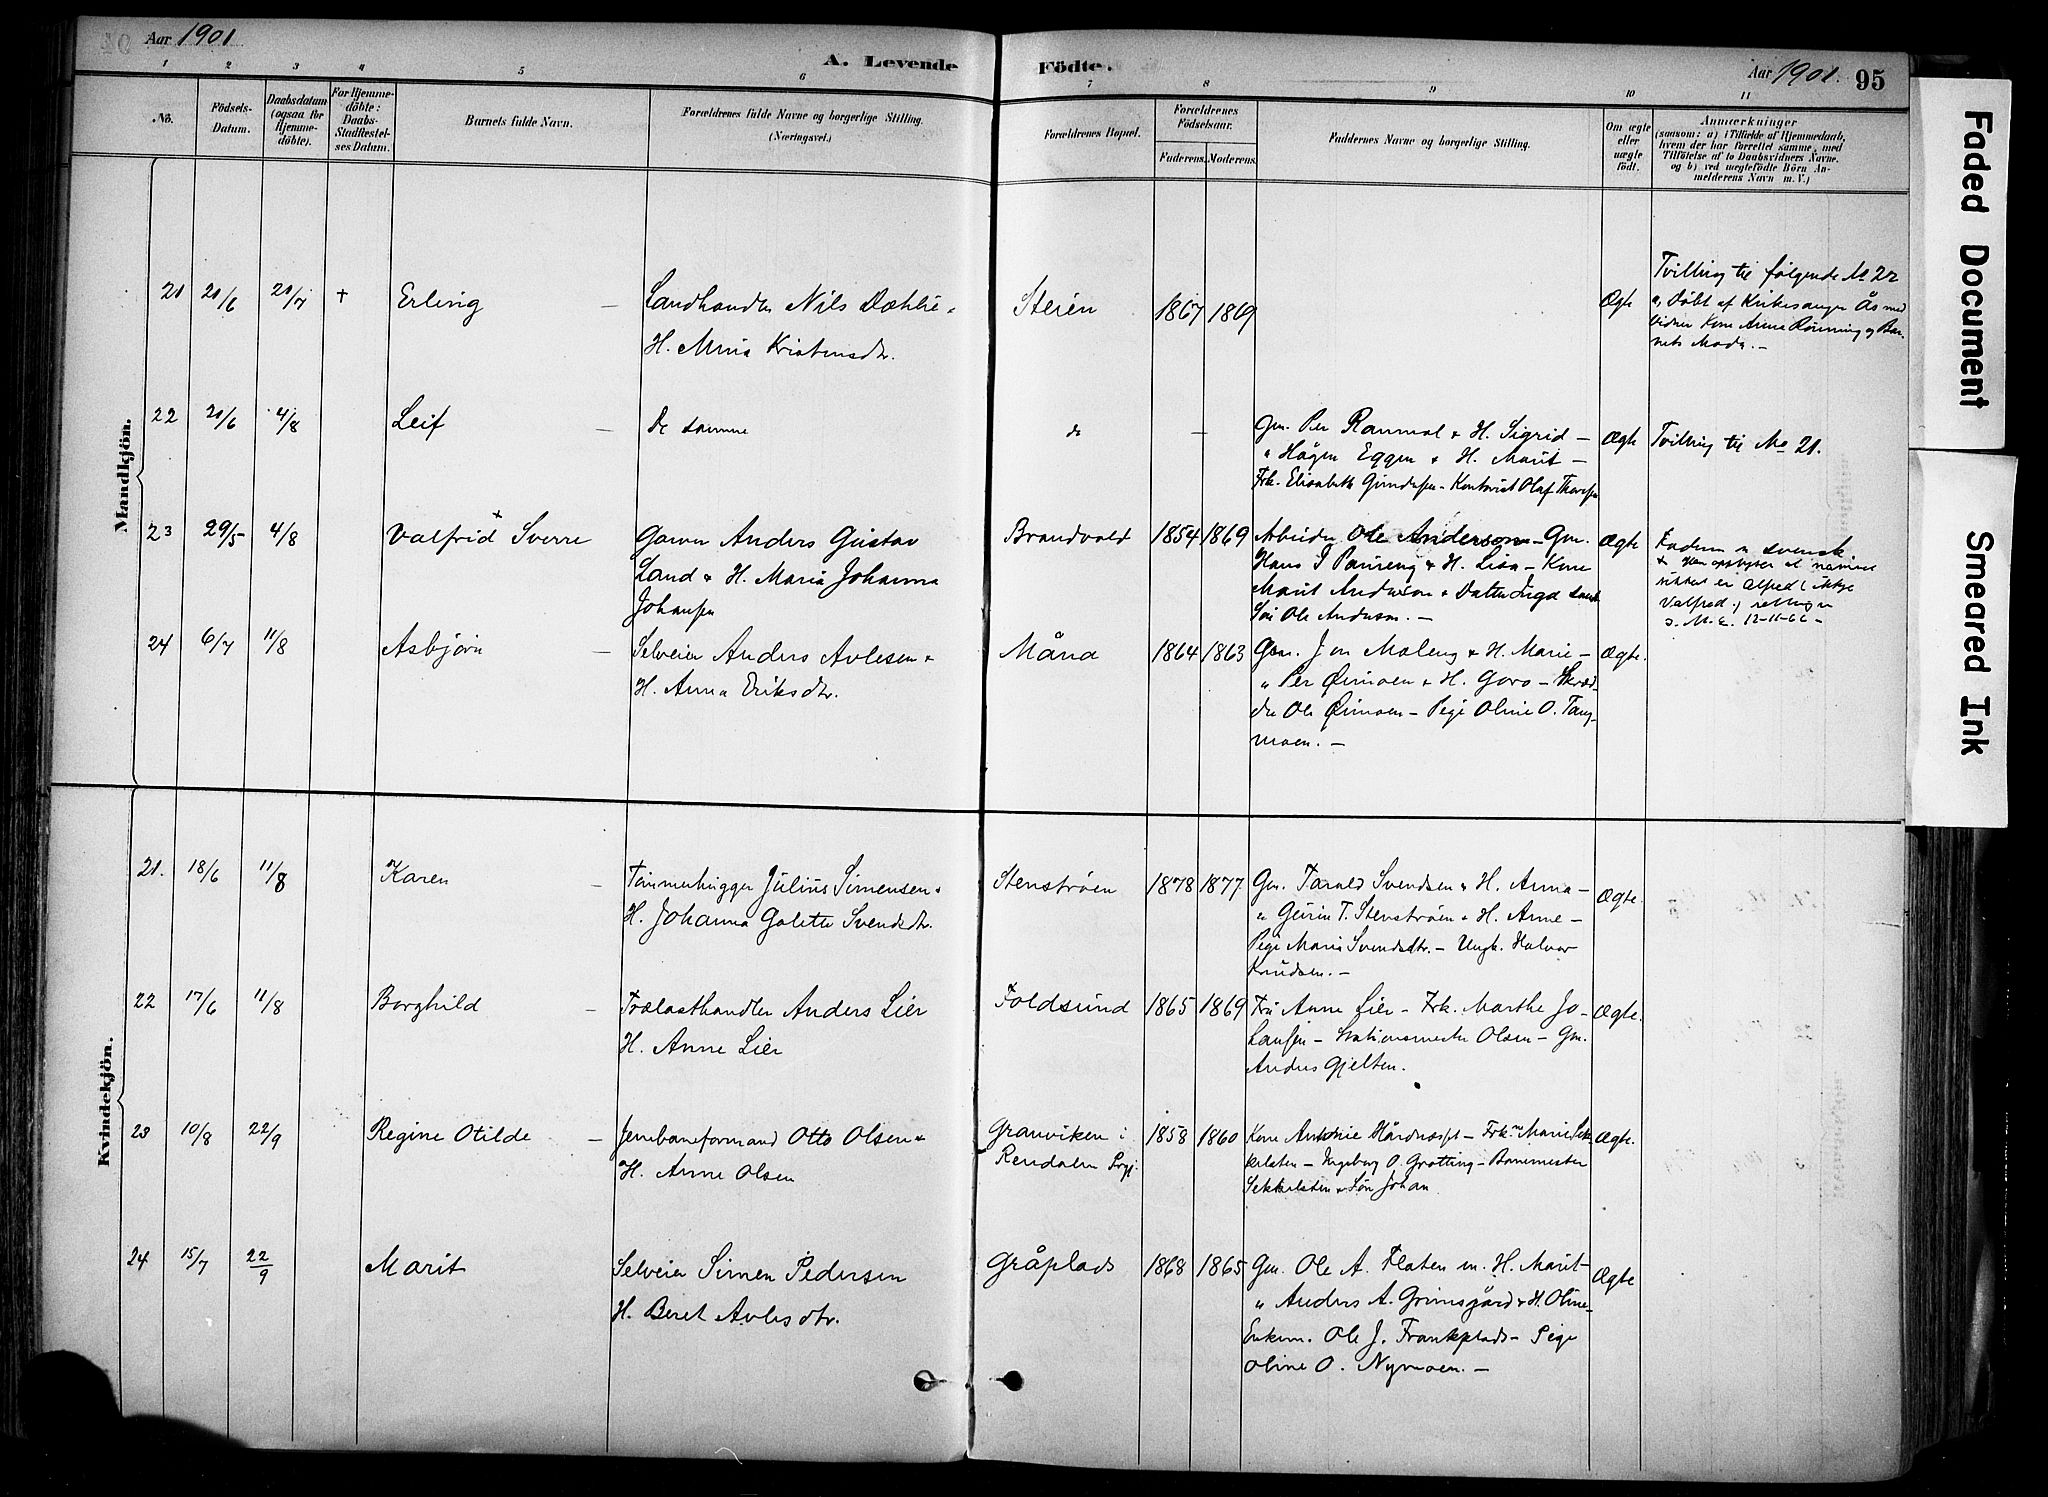 Aar 1901
A. Levende Födte.
Aar 1901. 95
1 2 3 4 5 6 7 8 9 10 11
No.
Födsels-
Datum.
Daabsdatum
(ogsaa for
Hjemme-
döbte).
For Hjemme-
döbte:
Daabs-
Stadfestel-
ses Datum.
Barnets fulde Navn.
Forældrenes fulde Navne og borgerlige Stilling.
(Næringsvei.)
Forældrenes Bopæl.
Forældrenes
Födselsaar.
Faderens. Moderens.
Faddernes Navne og borgerlige Stilling.
Om ægte
eller
uægte
födt.
Anmærkninger
(saasom: a) i Tilfælde af Hjemmedaab,
hvem der har forrettet samme, med
Tilföielse af to Daabsvidners Navne.
og b) ved uægtefödte Börn An-
melderens Navn m. V.)
Mandkjön.
21 21/6 21/7 + Erling –
Landhandler Nils Dæhlie &
H. Mina Kristensdtr.
Steien 1867 1869
Ægte
Tvilling til følgende No 22
Døbt af Kirkesanger Ås med
Vidner Kone Anna Rönning og Bar-
nets Moder. –
22 21/6 4/8 Leif –
De samme
do –
Gm. Per Ranmal & H. Sigrid –
" Hågen Eggen & H. Marit –
Frk. Elisabeth Gundersen – Kontorist Olaf Thoresen
Ægte
Tvilling til No 21.
23 29/5 4/8 Valfrid + Sverre
Garver Anders Gustav
Land & H. Maria Johanna
Johansen
Brandvold 1854 1869
Arbeider Ole Anderson – Gm.
Hans J Paureng & H. Lisa – Kone
Marit Anderson & Datter Inga samt
Søn Ole Anderson. –
Ægte
Faderen er svensk.
+ Han opplyser at navnet
sikkert er Alfred (ikke
Valfred)
12-11-66 –
24 6/7 11/8 Asbjörn –
Selveier Anders Avlesen &
H. Anna Eriksdtr.
Måna 1864 1863
Gm. Jon Moleng & H. Marie –
" Per Öimoen & H. Goro – Skræd-
der Ole Öimoen – Pige Oline O. Tang-
moen. –
Ægte.
Kvindekjön.
21. 18/6 11/8 Karen –
Tömmerhugger Julius Simensen &
H. Johanna Golette Svendsdtr.
Stenströen 1878 1877
Gm. Tarald Svendsen & H. Anna –
" Geirin T. Stenströen & H. Anne –
Pige Maria Svendsdtr. – Ungk. Halvor
Knudsen. –
Ægte.
22 17/6 11/8 Borghild –
Trælasthandler Anders Lier
H. Anne Lier
Foldsund 1865 1869
Fru Anne Lier – Frk. Marthe Jo-
hansen – Stationsmester Olsen – Gm.
Anders Gjelten.
Ægte.
23 10/8 22/9 Regine Otilde –
Jernbaneformand Otto Olsen &
H. Anne Olsen
Granviken i
Rendalen Prgj.
1858 1860
Kone Antonie Hårdnæsset – Frkne Marie Sek-
kelsten – Ingeborg O. Grötting – Banemester
Sekkelsten & Søn Johan
Ægte.
24 15/7 22/9 Marit
Selveier Simen Pedersen
H. Beret Avlesdtr.
Gråplads 1868 1865
Gm. Ole A. Flaten m. H. Marit –
" Anders A. Grimsgård & H. Oline –
Enkem. Ole J. Frankplads – Pige
Oline O. Nymoen. –
Ægte
Faded Document
Smeared Ink